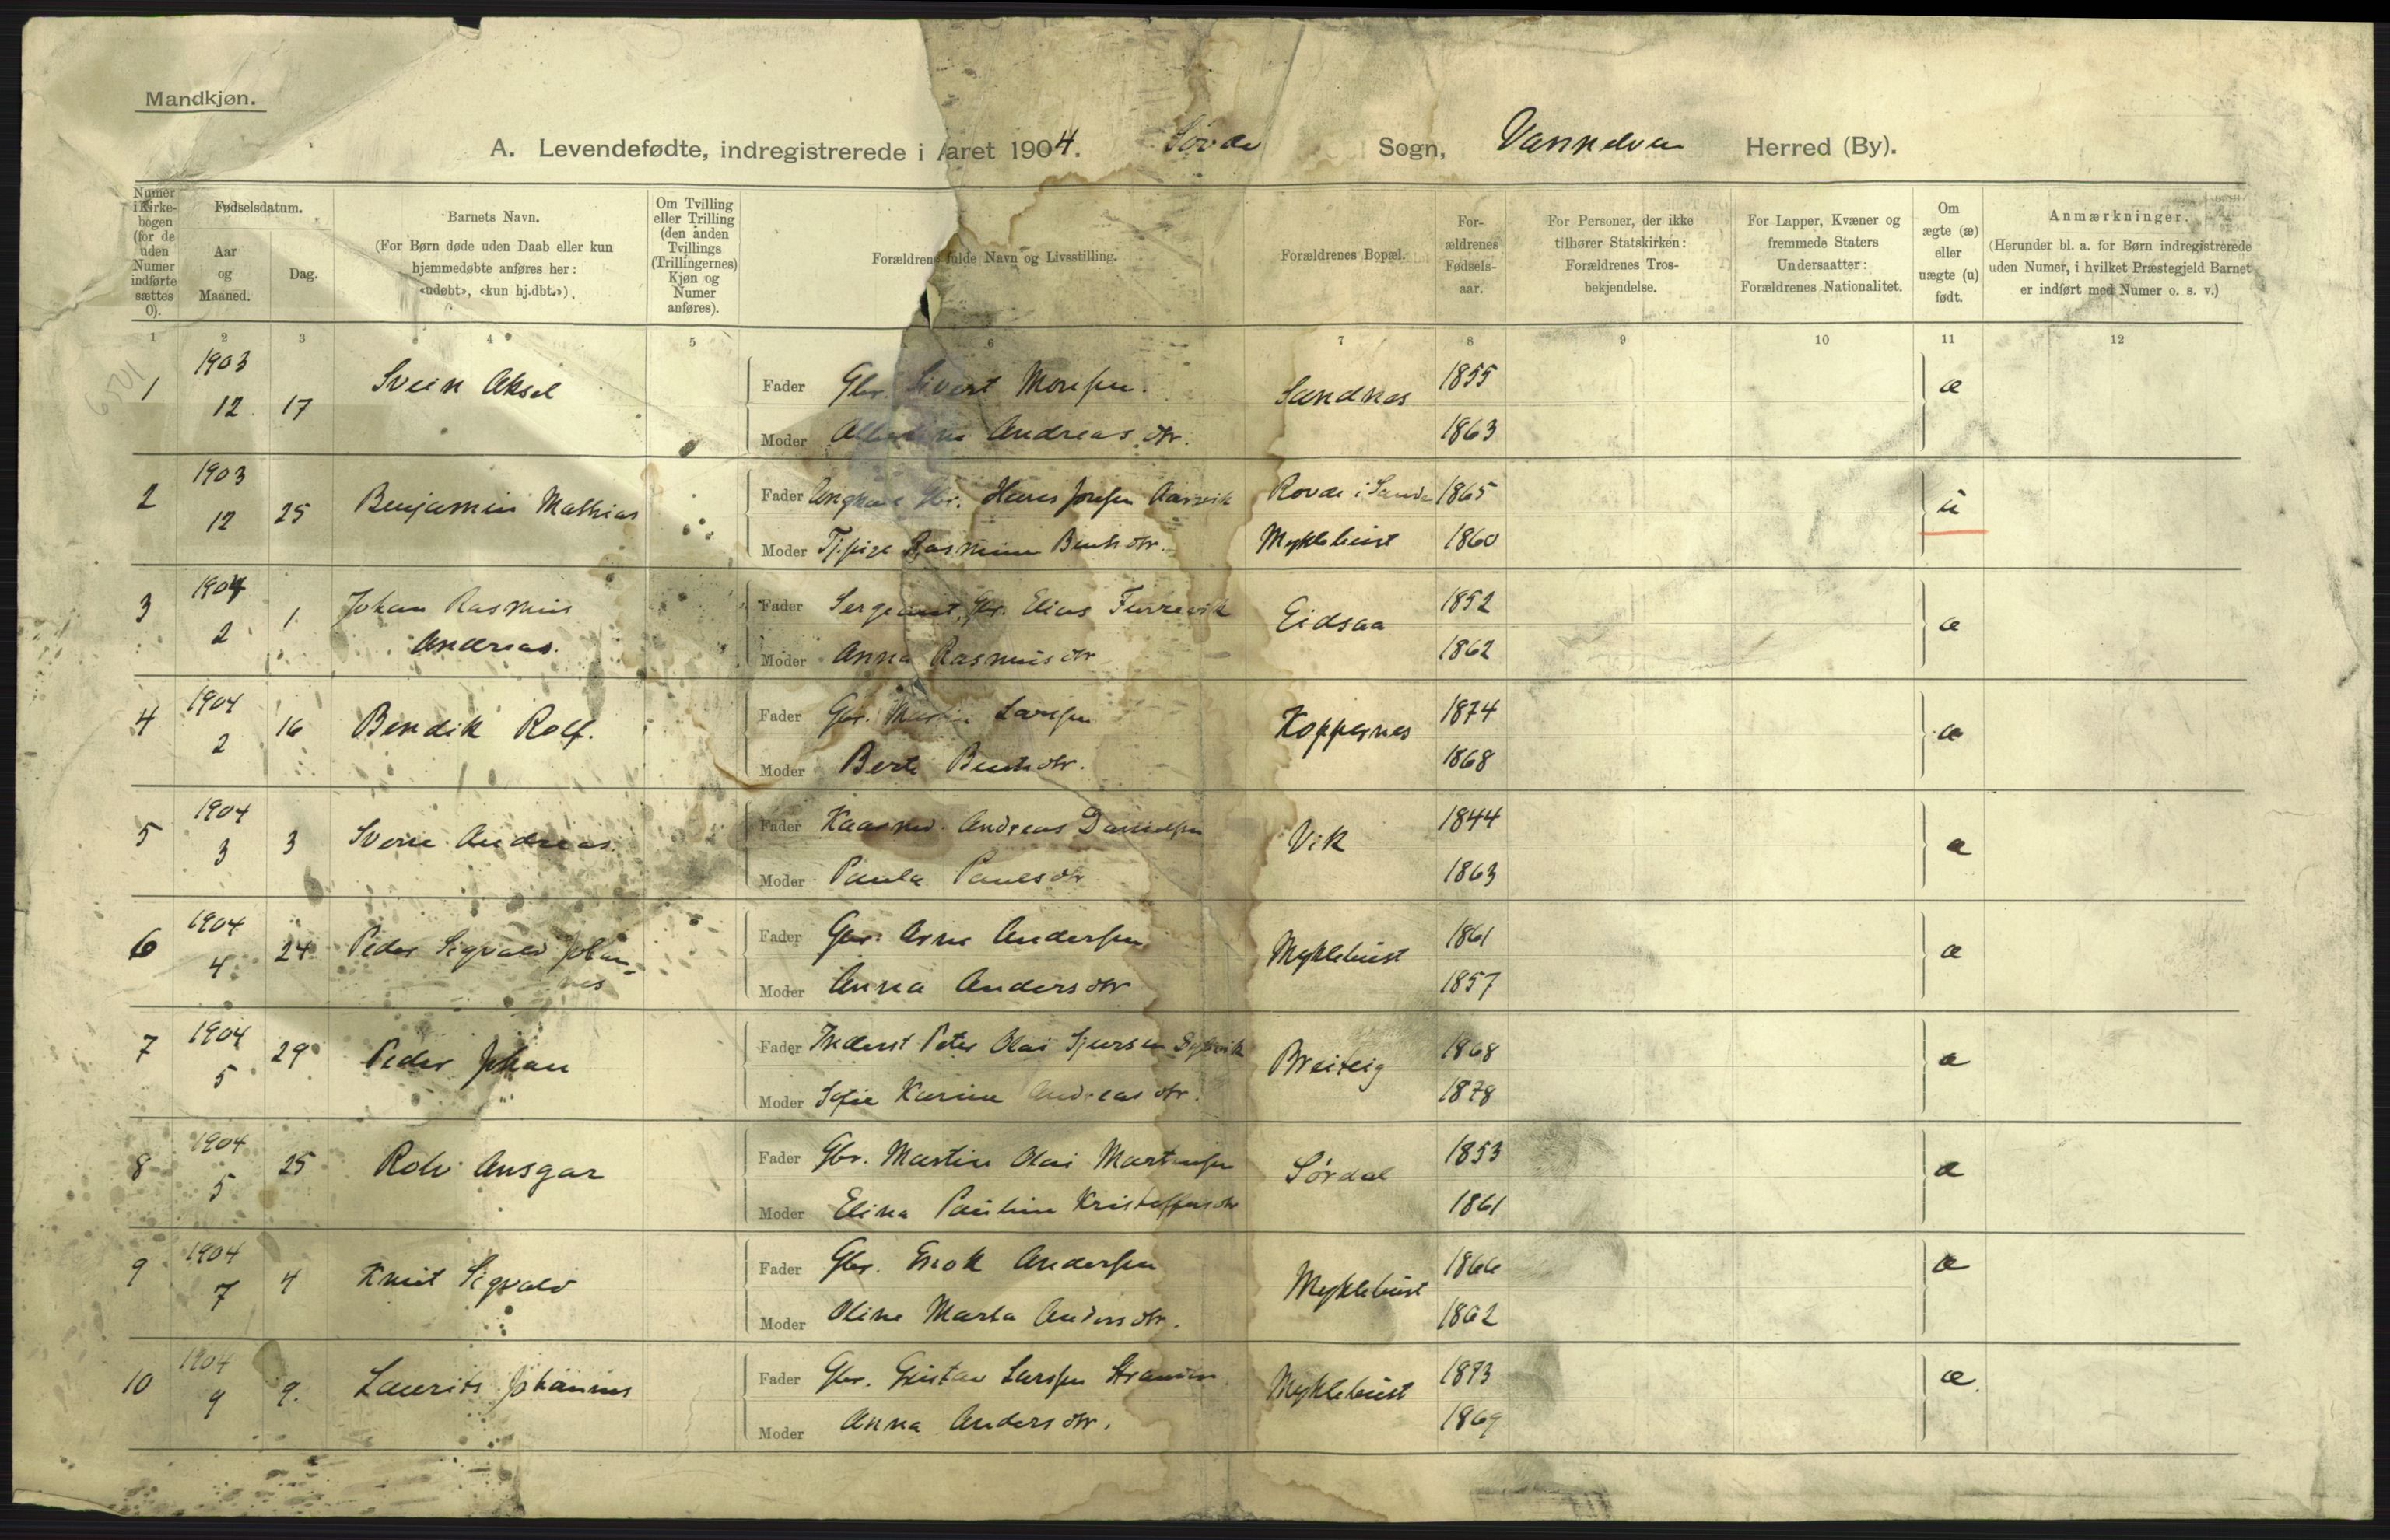 Mandkjøn.
A. Levendefødte, indregistrerede i Aaret 1904. Søvde Sogn, Vannelven Herred (By).
Numer i Kirkebogen (for de uden Numer indførte sættes 0).
Fødselsdatum.
Aar og Maaned.
Dag.
Barnets Navn.
(For Børn døde uden Daab eller kun hjemmedøbte anføres her: «udøbt», «kun hj.dbt.»).
Om Tvilling eller Trilling (den anden Tvillings (Trillingernes) Kjøn og Numer anføres).
Forældrenes fulde Navn og Livsstilling.
Forældrenes Bopæl.
Forældrenes Fødselsaar.
For Personer, der ikke tilhører Statskirken: Forældrenes Trosbekjendelse.
For Lapper, Kvæner og fremmede Staters Undersaatter: Forældrenes Nationalitet.
Om ægte (æ) eller uægte (u) født.
Anmærkninger.
(Herunder bl. a. for Børn indregistrerede uden Numer, i hvilket Præstegjeld Barnet er indført med Numer o. s. v.)
1 2 3 4 5 6 7 8 9 10 11 12
1 1903 12 17 Svein Aksel Fader Gbr. Sivert Monsen. Sandnes 1855 æ
Moder Albertine Andreasdtr. 1863
2 1903 12 25 Benjamin Mathias Fader Ungkar Gbr. Hans Aarsvik Rovde i Sande 1865 u
Moder Tj.pige Rasmine Bentsdtr. Myklebust 1860
3 1904 2 1 Johan Rasmus Andreas. Fader Sergeant, Gbr. Elias Furrevik Eidsaa 1852 æ
Moder Anna Rasmusdtr 1862
4 1904 2 16 Bendik Rolf. Fader Gbr. Martin Larsen Koppernes 1874 æ
Moder Berte Bentsdtr. 1868
5 1904 3 3 Sverre Andreas. Fader Kaarmd. Andreas Danielsen Vik 1844 æ
Moder Paula Paulsdtr 1863
6 1904 4 24 Peder Sigvald Johannes Fader Gbr. Arne Andersen Myklebust 1861 æ
Moder Anna Andersdtr 1857
7 1904 5 29 Peder Johan Fader Inderst Peter Olai Sjursen Dybvik Breiteig 1868 æ
Moder Sofie Karine Andreasdtr. 1878
8 1904 5 25 Rolv Ansgar Fader Gbr. Martin Olai Martinsen Sørdal 1853 æ
Moder Elina Pauline Kristoffersdtr 1861
9 1904 7 4 Knut Sigvald Fader Gbr. Enok Andersen Myklebust 1866 æ
Moder Oline Marta Andersdtr. 1862
10 1904 9 9. Laurits Johannes Fader Gbr. Gustav Larssen Myklebust 1873 æ.
Moder Anna Andersdtr. 1869